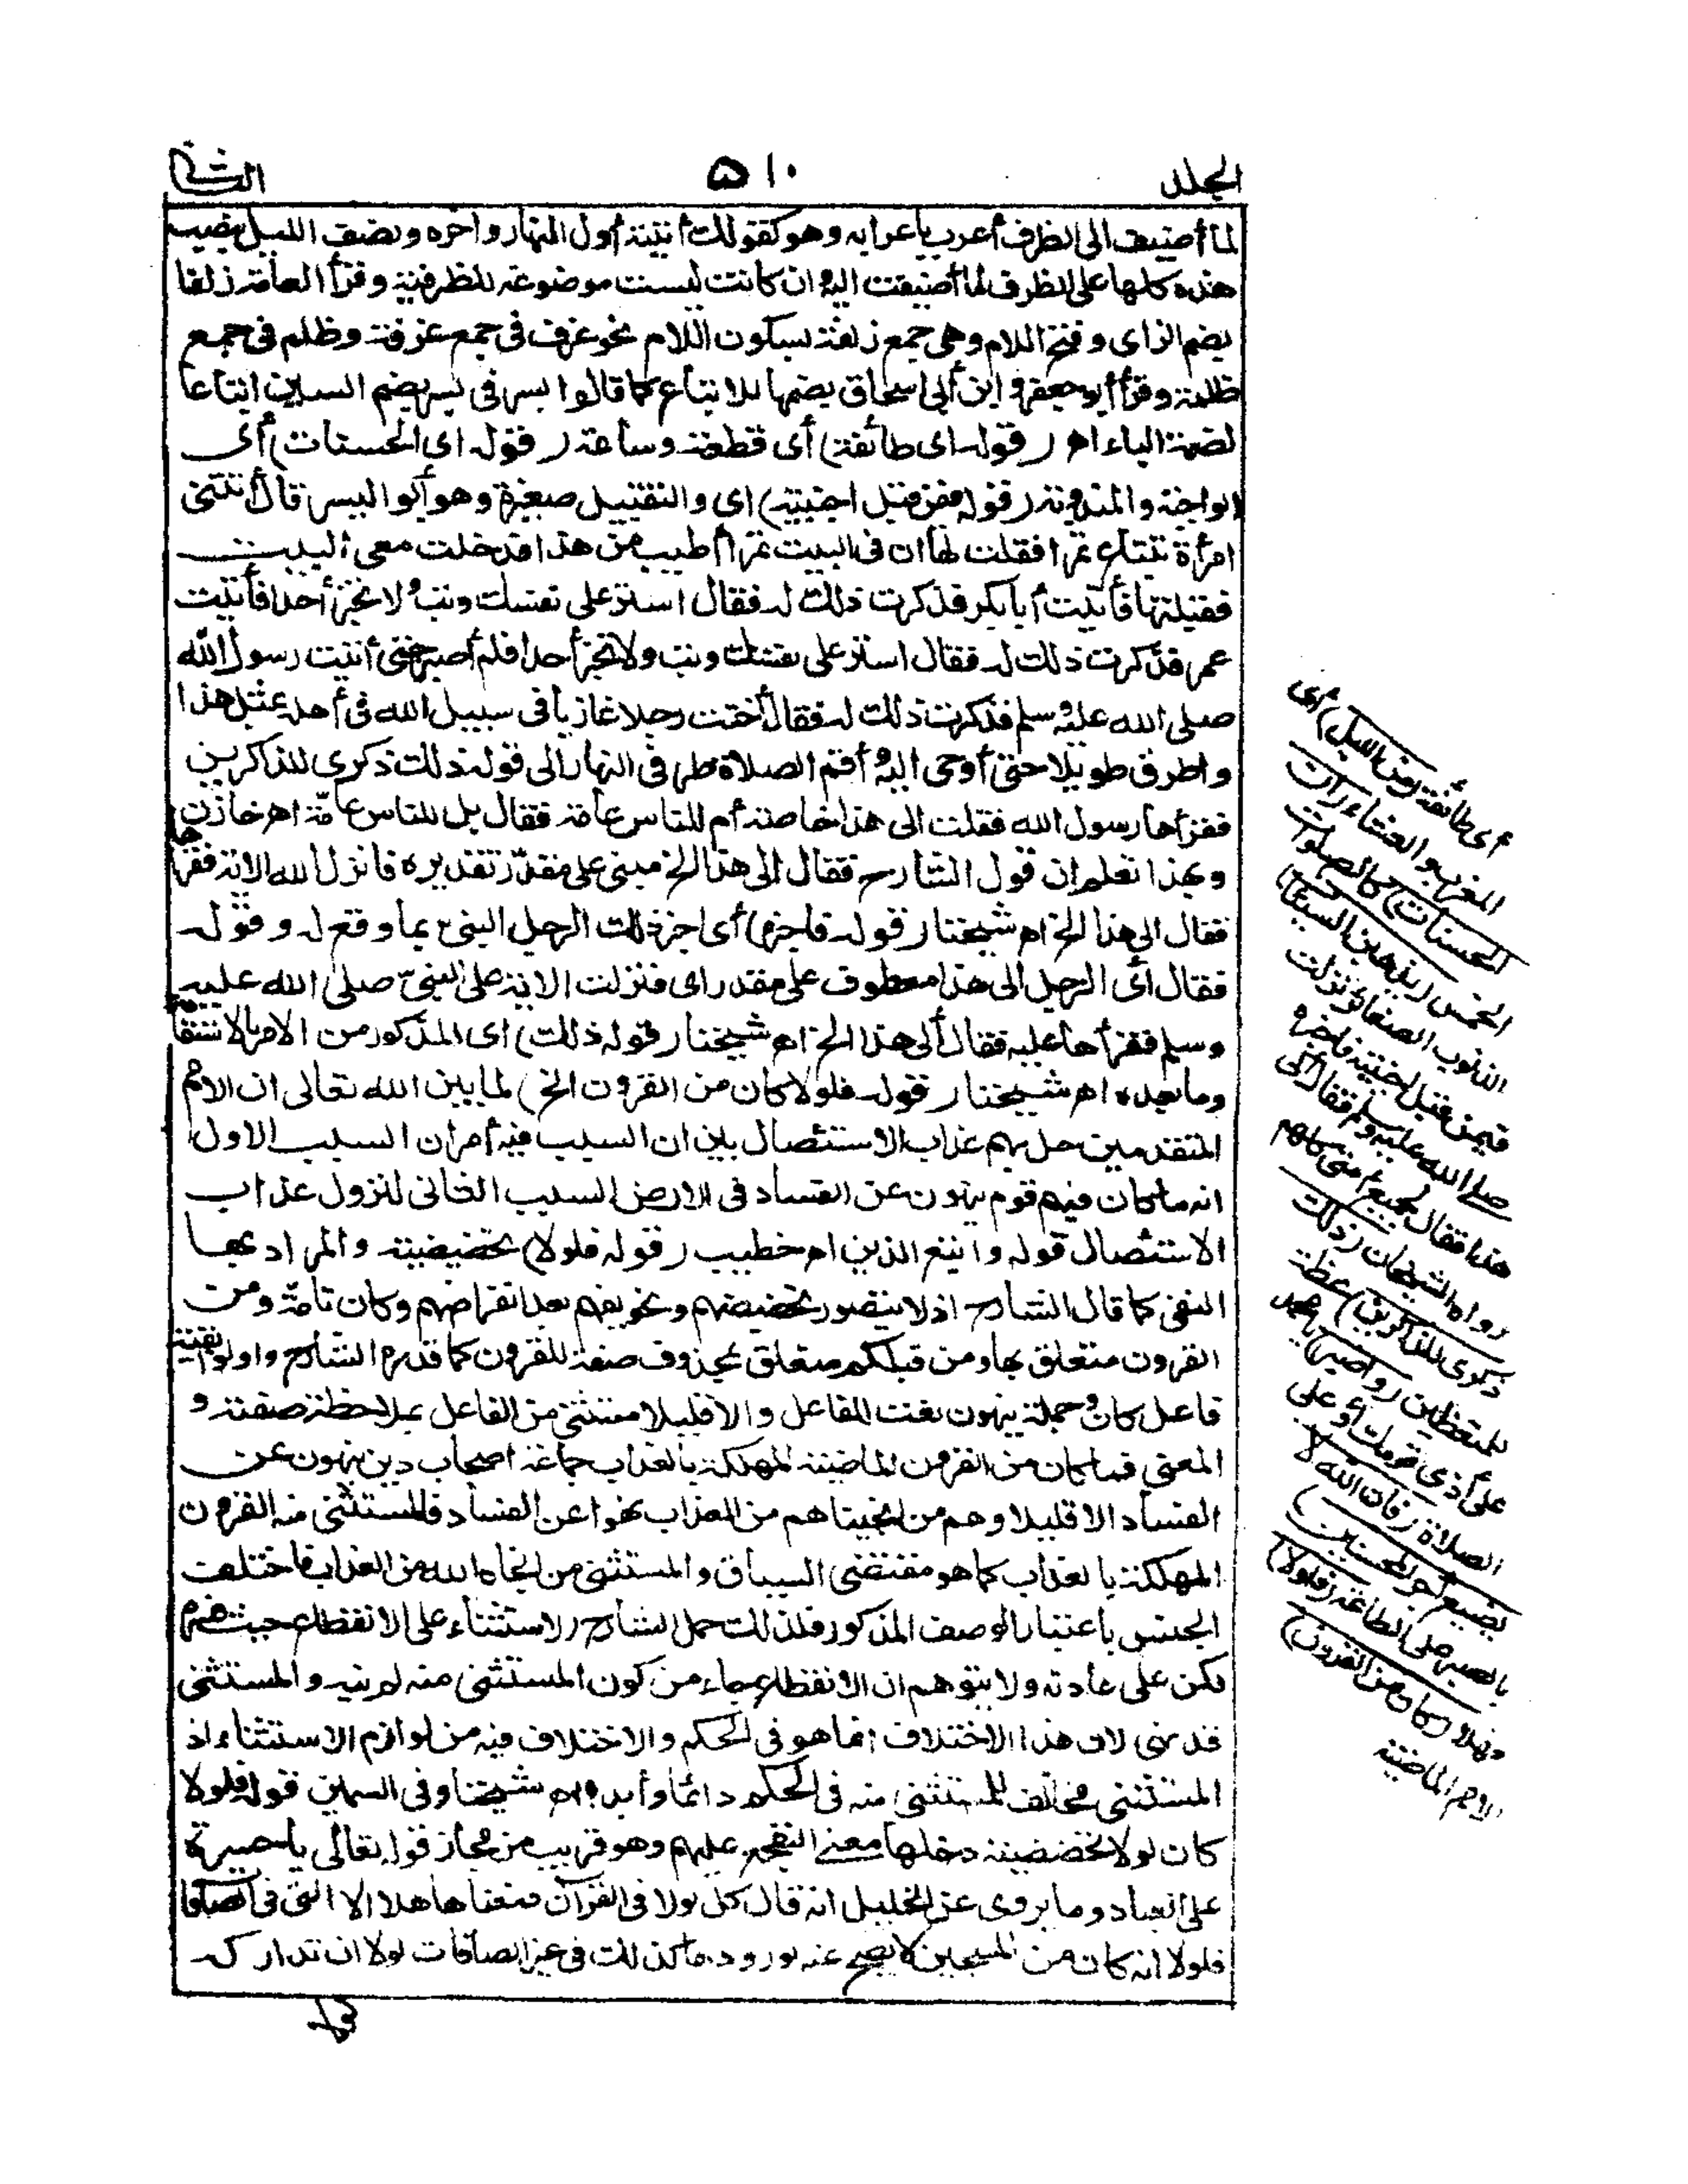 الجلد ٥١٠ الثاني
لما أضيف الى الظرف أعرب باعرابه وهو كقولك أتيته أول النهار واخره ونصف الليل بنصب
هذه كلها على الظرف لما أضيفت اليه وان كانت ليست موضوعة للظرفية وقرأ العامة زلفا
بضم الزاى وفتح اللام وهى جمع زلفة بسكون اللام نحو غرف فى جمع غرفة وظلم فى جمع
ظلمة وقرأ أبو جعفر وابن أبى اسحاق بضمها للاتباع كما قالوا بسر فى بسر بضم السين اتباعا
لضمة الباء اهـ (قوله اى طائفة) أى قطعة وساعة (قوله اى الحسنات) أى
الواجبة والمندوبة (قوله فمن قبل اجنبية) اى والتقبيل صغيرة وهو أبو اليسر قال أتتنى
امرأة تبتاع تمرا فقلت لها ان فى البيت تمرا أطيب من هذا فدخلت معى البيت
فقبلتها فأتيت أبا بكر فذكرت ذلك له فقال استر على نفسك وتب ولا تخبر أحدا فأتيت
عمر فذكرت ذلك له فقال استر على نفسك وتب ولا تخبر أحدا فلم أصبر حتى أتيت رسول الله
صلى الله عليه وسلم فذكرت ذلك له فقال أخنت رجلا غازيا فى سبيل الله فى أهله بمثل هذا
واطرق طويلا حتى أوحى اليه أقم الصلاة طرفى النهار الى قوله ذلك ذكرى للذاكرين
فقرأها رسول الله فقلت الى هذا خاصة أم للناس عامة فقال بل للناس عامة اهـ خازن
وبهذا تعلم ان قول الشارح فقال الى هذا الخ مبنى على مقدر تقديره فانزل الله الاية فقرأها
فقال الى هذا الخ اهـ شيخنا (قوله فاخبره) أى اخبر ذلك الرجل النبى بما وقع له وقوله
فقال أى الرجل الى هذا معطوف على مقدر اى فنزلت الاية على النبى صلى الله عليه
وسلم فقرأها عليه فقال ألى هذا الخ اهـ شيخنا (قوله ذلك) اى المذكور من الامر بالاستقامة
وما بعده اهـ شيخنا (قوله فلولا كان من القرون الخ) لما بين الله تعالى ان الامم
المتقدمين حل بهم عذاب الاستئصال بين ان السبب فيه أمران السبب الاول
انه ما كان فيهم قوم ينهون عن الفساد فى الارض السبب الثانى لنزول عذاب
الاستئصال قوله واتبع الذين اهـ خطيب (قوله فلولا) تحضيضية والمراد بها
النفى كما قال الشارح اذ لا يتصور تحضيضهم وتخويفهم بعد انقراضهم وكان تامة ومن
القرون متعلق بها ومن قبلكم متعلق بمحذوف صفة للقرون كما قدره الشارح واولوا بقية
فاعل كان وجملة ينهون نعت للفاعل والا قليلا مستثنى من الفاعل بملاحظة صفته و
المعنى فما كان من القرون الماضية المهلكة بالعذاب جماعة اصحاب دين ينهون عن
الفساد الا قليلا وهم من انجيناهم من العذاب نهوا عن الفساد فالمستثنى منه القرون
المهلكة بالعذاب كما هو مقتضى السياق والمستثنى من انجاه الله من العذاب فاختلف
الجنس باعتبار الوصف المذكور فلذلك حمل الشارح الاستثناء على الانقطاع حيث عبر
بلكن على عادته ولا يتوهم ان الانقطاع جاء من كون المستثنى منه لم ينه والمستثنى
قد نهى لان هذا الاختلاف انما هو فى الحكم والاختلاف فيه من لوازم الاستثناء اذ
المستثنى مخالف للمستثنى منه فى الحكم دائما وأبدا اهـ شيخنا وفى السمين قوله فلولا
كان لولا تحضيضية دخلها معنى التفجع عليهم وهو قريب من مجاز قوله تعالى يا حسرة
على العباد وما يروى عن الخليل انه قال كل لولا فى القرآن فمعناها هلا الا التى فى الصافات
فلولا انه كان من المسبحين لا يصح عنه لورودها كذلك فى غير الصافات لولا ان تداركه
أى طائفة (من الليل) أى
المغرب والعشاء (ان
الحسنات) كالصلوات
الخمس (يذهبن السيئات)
الذنوب الصغائر نزلت
فيمن قبل اجنبية فاخبره
صلى الله عليه وسلم فقال ألى
هذا فقال لجميع أمتى كلهم
رواه الشيخان (ذلك
ذكرى للذاكرين) عظة
للمتعظين (واصبر) يا محمد
على أذى قومك أو على
الصلاة (فان الله لا
يضيع أجر المحسنين)
بالصبر على الطاعة (فلولا)
فهلا (كان من القرون)
الامم الماضية